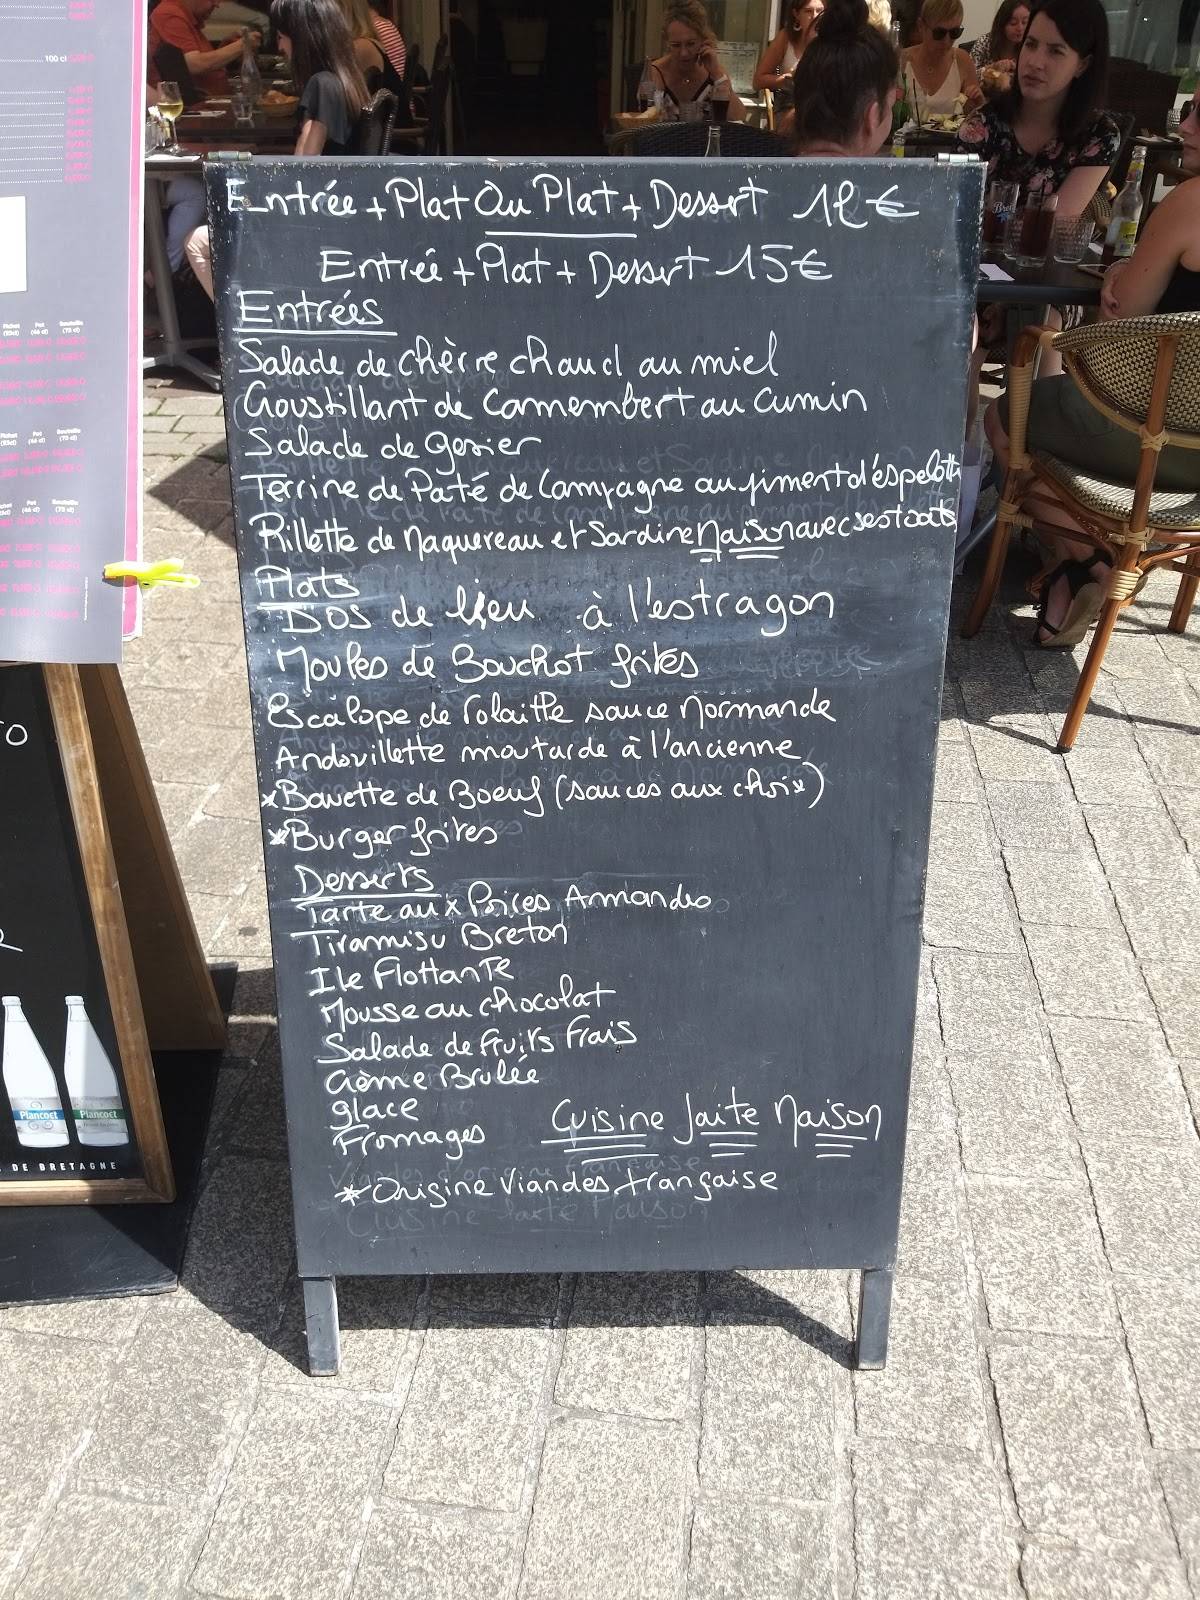 Entrée + Plat Ou Plat + Dessert 12 €
Entrée + Plat + Dessert 15 €
Entrées
Salade de chèvre chaud au miel
Croustillant de Camembert au Cumin
Salade de Gesier
Terrine de Paté de Campagne au piment d'éspelette
Rillette de Maquereau et Sardine Maison avec ses toasts
Plats
DOS de lieu à l'estragon
Moules de Bouchot frites
Escalope de Volaille sauce Normande
Andouillette moutarde à l'ancienne
*Bavette de Boeuf (sauces aux choix)
*Burger frites
Desserts
Tarte aux Poires Amandes
Tiramisu Breton
Ile Flottante
Mousse au chocolat
Salade de Fruits Frais
Crème Brulée
glace
Fromages
Cuisine faite Maison
* Origine Viandes française
100 cl
Pichet Pot Bouteille
(25cl) (46 cl) (75 cl)
Plancoët Plancoët
DE BRETAGNE